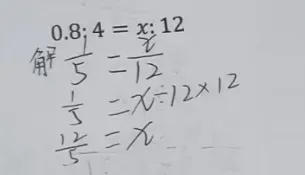 0.8:4=x:12
解 1/5 = x/12
1/5 = x÷12×12
12/5 = x